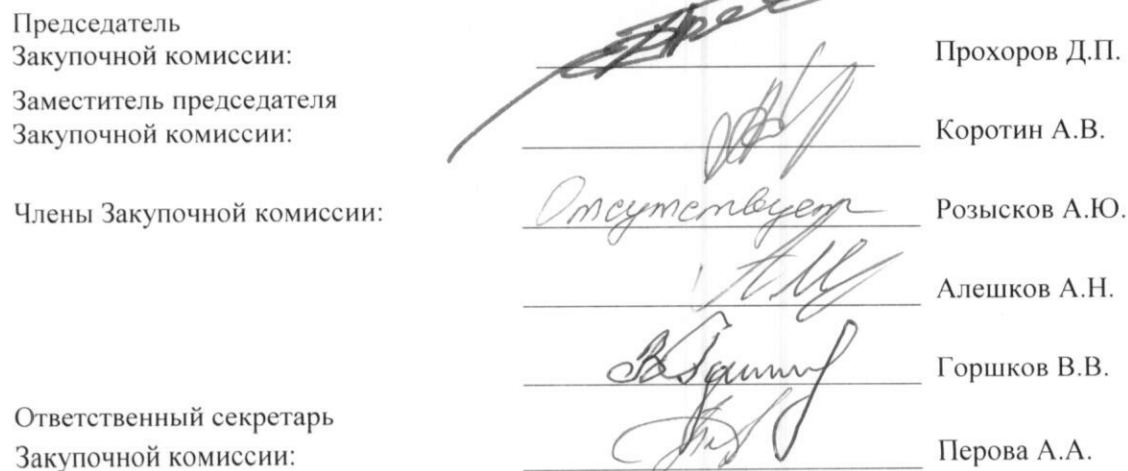 Председатель
Закупочной комиссии: Прохоров Д.П.
Заместитель председателя
Закупочной комиссии: Коротин А.В.
Члены Закупочной комиссии: Отсутствует Розысков А.Ю.
Алешков А.Н.
Горшков В.В.
Ответственный секретарь
Закупочной комиссии: Перова А.А.